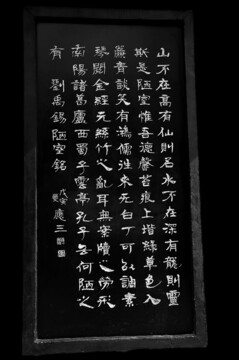 山不在高有仙則名水不在深有龍則靈
斯是陋室惟吾德馨苔痕上階綠草色入
簾青談笑有鴻儒往來无白丁可以調素
琴閱金經无絲竹之亂耳無案牘之勞形
南陽諸葛廬西蜀子雲亭孔子云何陋之
有 劉禹錫陋室銘